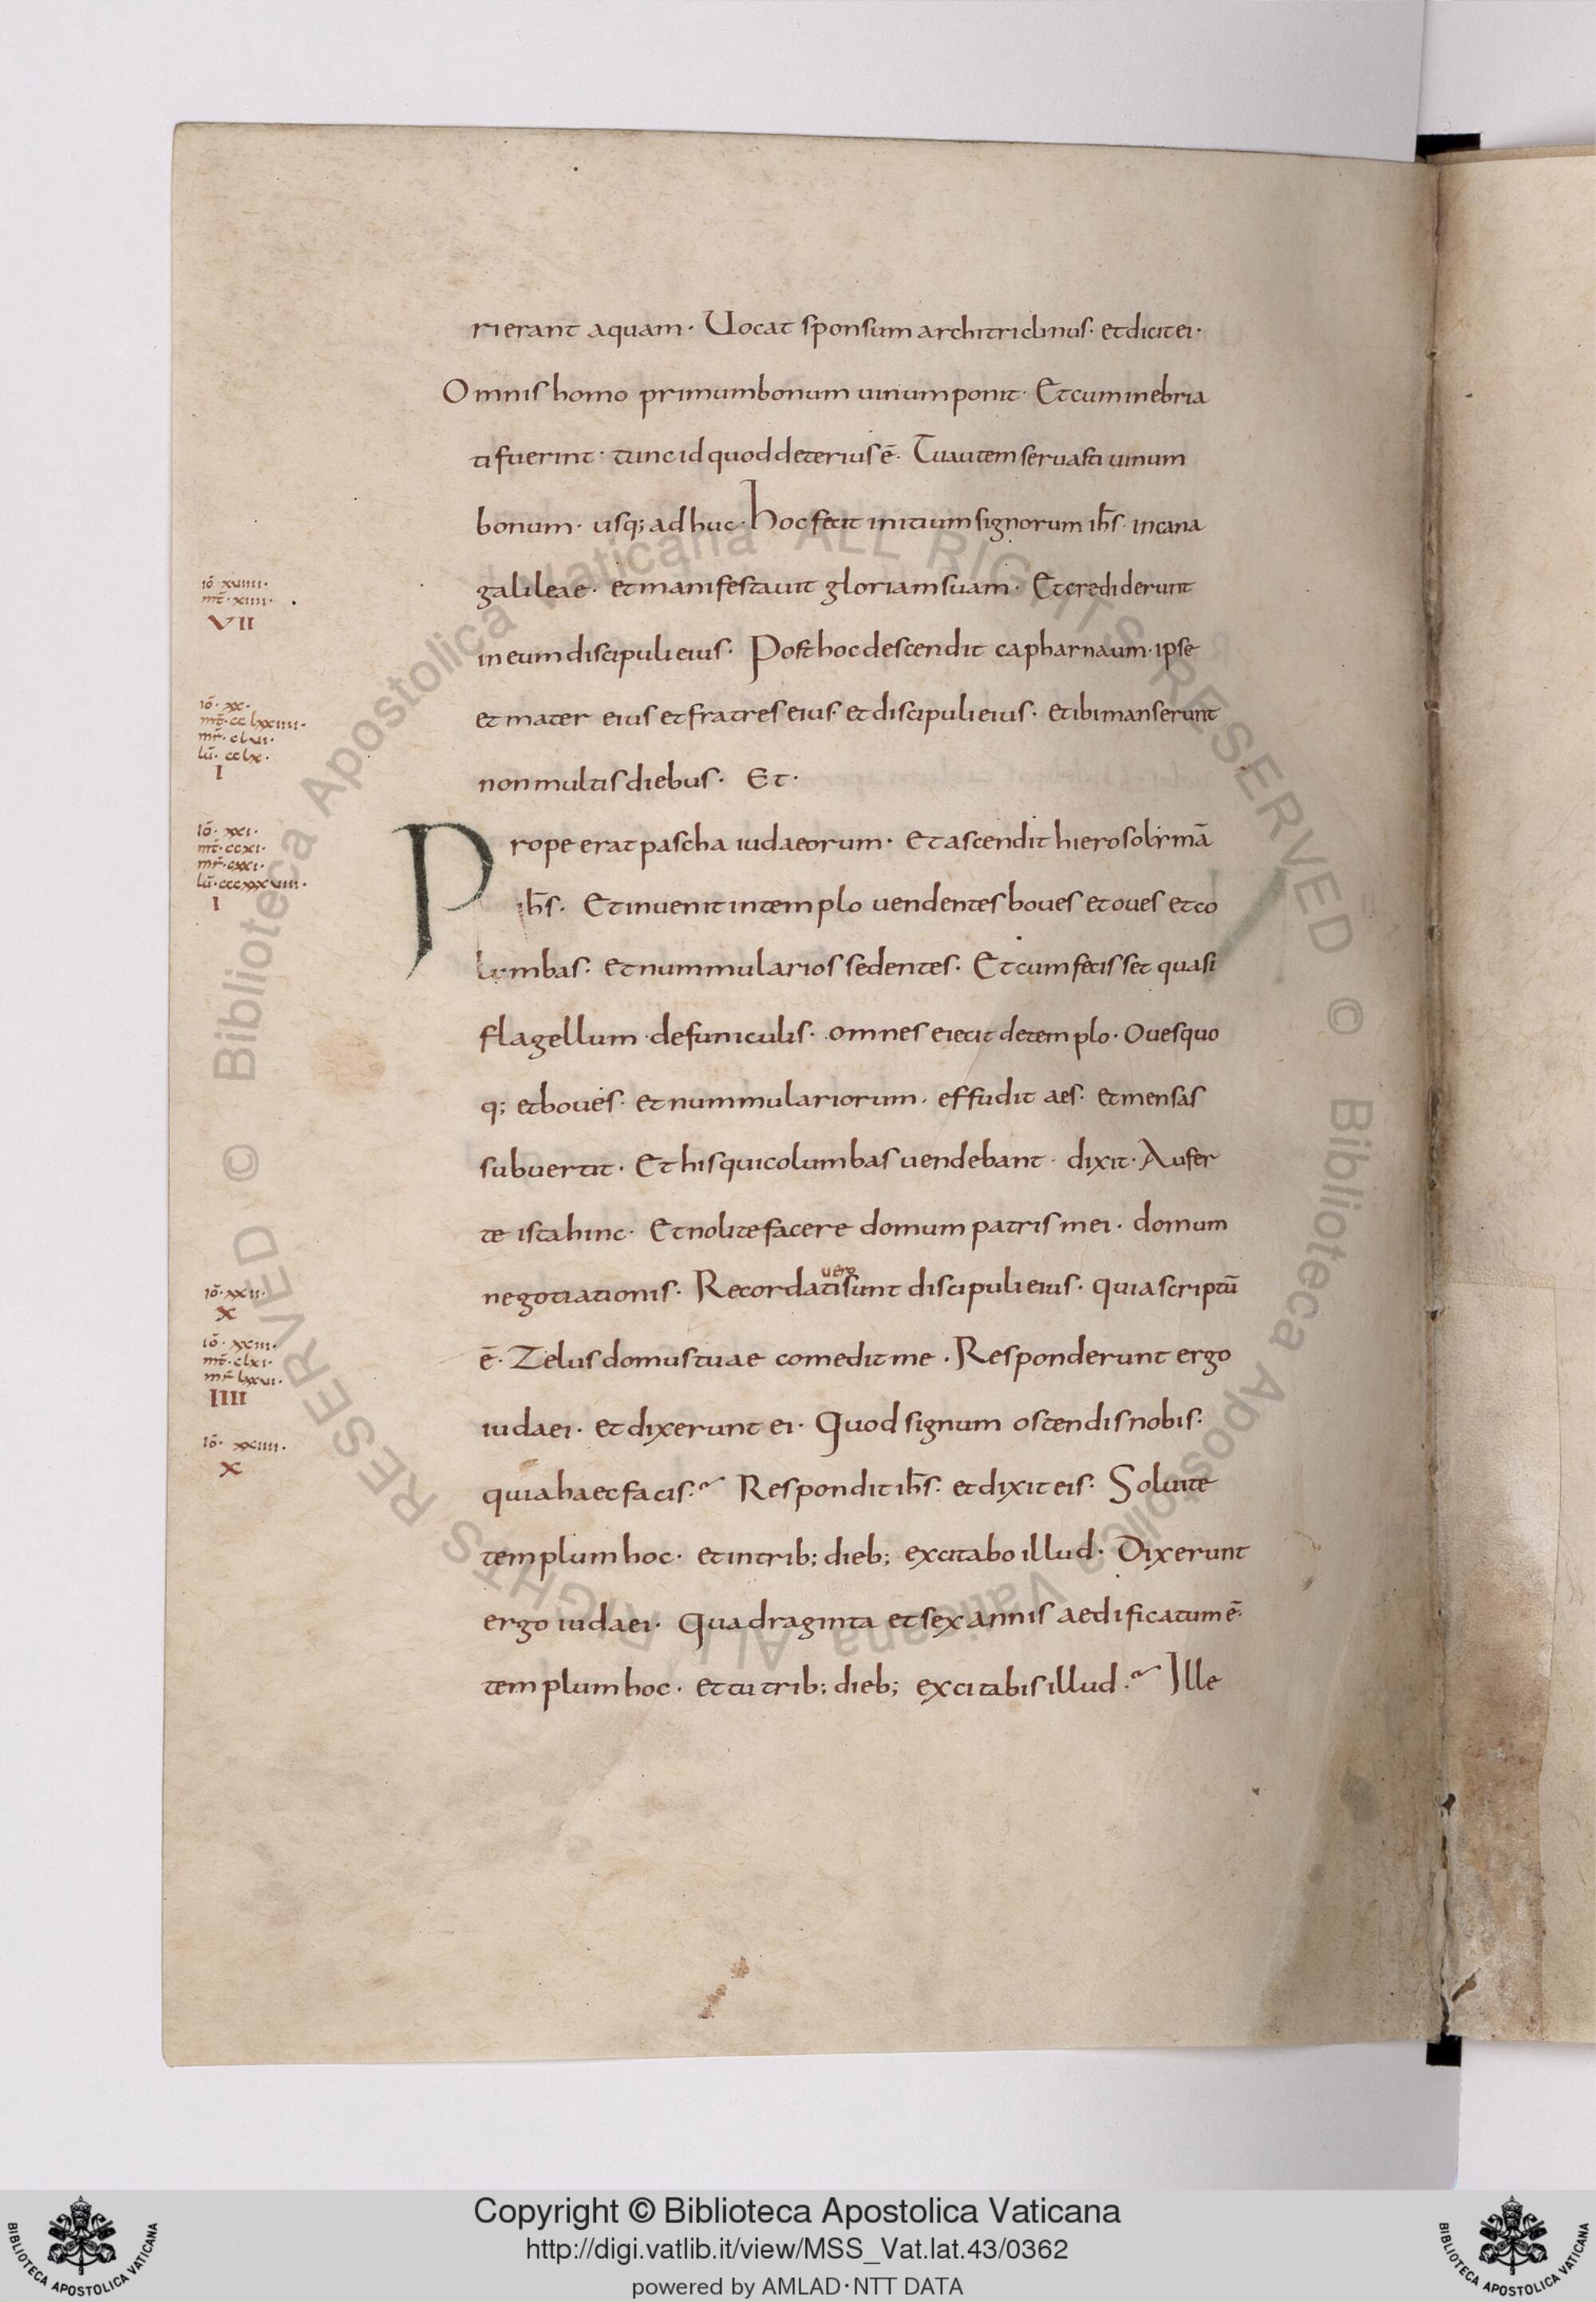 rierant aquam· Uocat sponsum architriclinus· et dicit ei·
Omnis homo primum bonum uinum ponit· Et cum inebria
ti fuerint· tunc id quod deterius ē· Tu autem seruasti uinum
bonum· usq; ad huc· hoc fecit initium signorum ih̄s· in cana
iō· xuiiii·
galileae· et manifestauit gloriam suam· Et crediderunt
mt̄· xiiii·
VII
in eum discipuli eius· Post hoc descendit capharnaum· ipse
iō· xx·
mt̄· cclxxiiii·
et mater eius et fratres eius· et discipuli eius· et ibi manserunt
mr̄· clui·
lū· cclx·
I
non multis diebus· Et·
iō· xxi·
Prope erat pascha iudaeorum· Et ascendit hierosolimā
mt̄· ccxi·
mr̄· cxxi·
lū· cccxxxuiii·
I
ih̄s· Et inuenit in templo uendentes boues et oues et co
lumbas· et nummularios sedentes· Et cum fecisset quasi
flagellum· de funiculis· omnes eiecit de templo· Oues quo
q; et boues· et nummulariorum· effudit aes· et mensas
subuertit· Et his qui columbas uendebant· dixit· Aufer
te ista hinc· Et nolite facere domum patris mei· domum
uero
negotiationis· Recordati sunt discipuli eius· quia scriptū
iō· xxii·
X
iō· xxiii·
ē· Zelus domus tuae comedit me· Responderunt ergo
mt̄· clxi·
mr̄· lxxui·
IIII
iudaei· et dixerunt ei· Quod signum ostendis nobis·
iō· xxiiii·
X
quia haec facis? Respondit ih̄s· et dixit eis· Soluite
templum hoc· et in trib; dieb; excitabo illud· Dixerunt
ergo iudaei· Quadraginta et sex annis aedificatum ē·
templum hoc· et tu trib; dieb; excitabis illud? Ille
© Biblioteca Apostolica Vaticana ALL RIGHTS RESERVED © Biblioteca Apostolica Vaticana ALL RIGHTS RESERVED
Copyright © Biblioteca Apostolica Vaticana
http://digi.vatlib.it/view/MSS_Vat.lat.43/0362
powered by AMLAD·NTT DATA
BIBLIOTECA APOSTOLICA VATICANA
BIBLIOTECA APOSTOLICA VATICANA